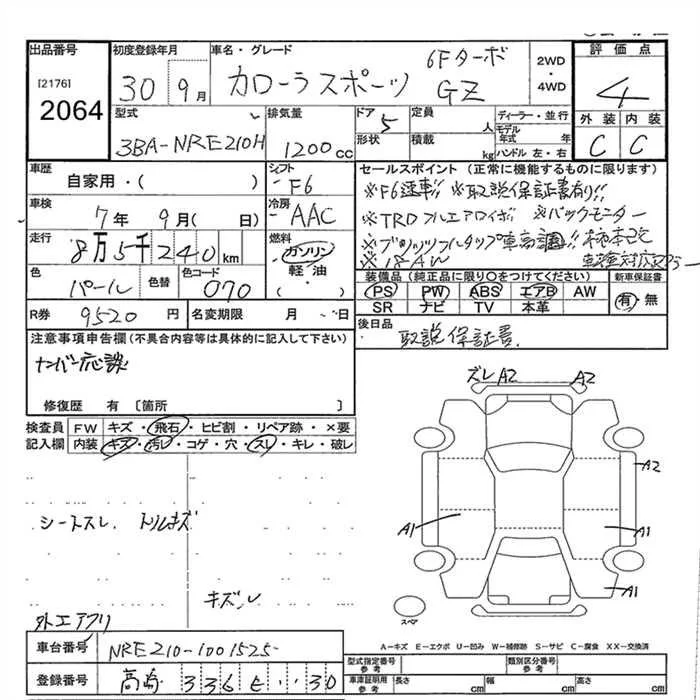 出品番号
[2176]
2064
初度登録年月
30 9月
車名・グレード
6Fターボ
カローラスポーツ GZ
2WD
・
4WD
評価点
4
外装 内装
C C
型式
3BA-NRE210H
排気量
1200cc
ドア
5
形状
定員
人
積載
kg
ディーラー・並行
モデル年式 年
ハンドル 左・右
車歴
自家用・( )
シフト
F6
車検
7年 9月( 日)
冷房
AAC
走行
8万5千240km
燃料
ガソリン
軽・油
( )
色
パール
色替
色コード
070
R券
9520円
名変期限 月 日
セールスポイント (正常に機能するものに限ります)
※F6速車!! ※取説保証書有り!!
※TRDフルエアロイボ ※バックモニター
※18AW
装備品 (純正品に限り○をつけてください)
PS PW ABS エアB AW
SR ナビ TV 本革
新車保証書
有・無
後日品
取説保証書
注意事項申告欄(不具合内容等は具体的に記入して下さい)
ナンバー応談
修復歴 有 〔箇所 〕
検査員記入欄
FW キズ・飛石・ヒビ割・リペア跡・×要
内装 キズ・汚レ・コゲ・穴・スレ・キレ・破レ
シートスレ トリムキズ
キズレ
外エアフリ
ズレ A2 A2
A2
A1 A1
A1
スペア
A-キズ E-エクボ U-凹み W-補修跡 S-サビ C-腐食 XX-交換済
車台番号
NRE210-1001525
登録番号
高崎 336 E 30
型式指定番号
参考
類別区分番号
参考
車庫証明用
参考
長さ cm
幅 cm
高さ cm